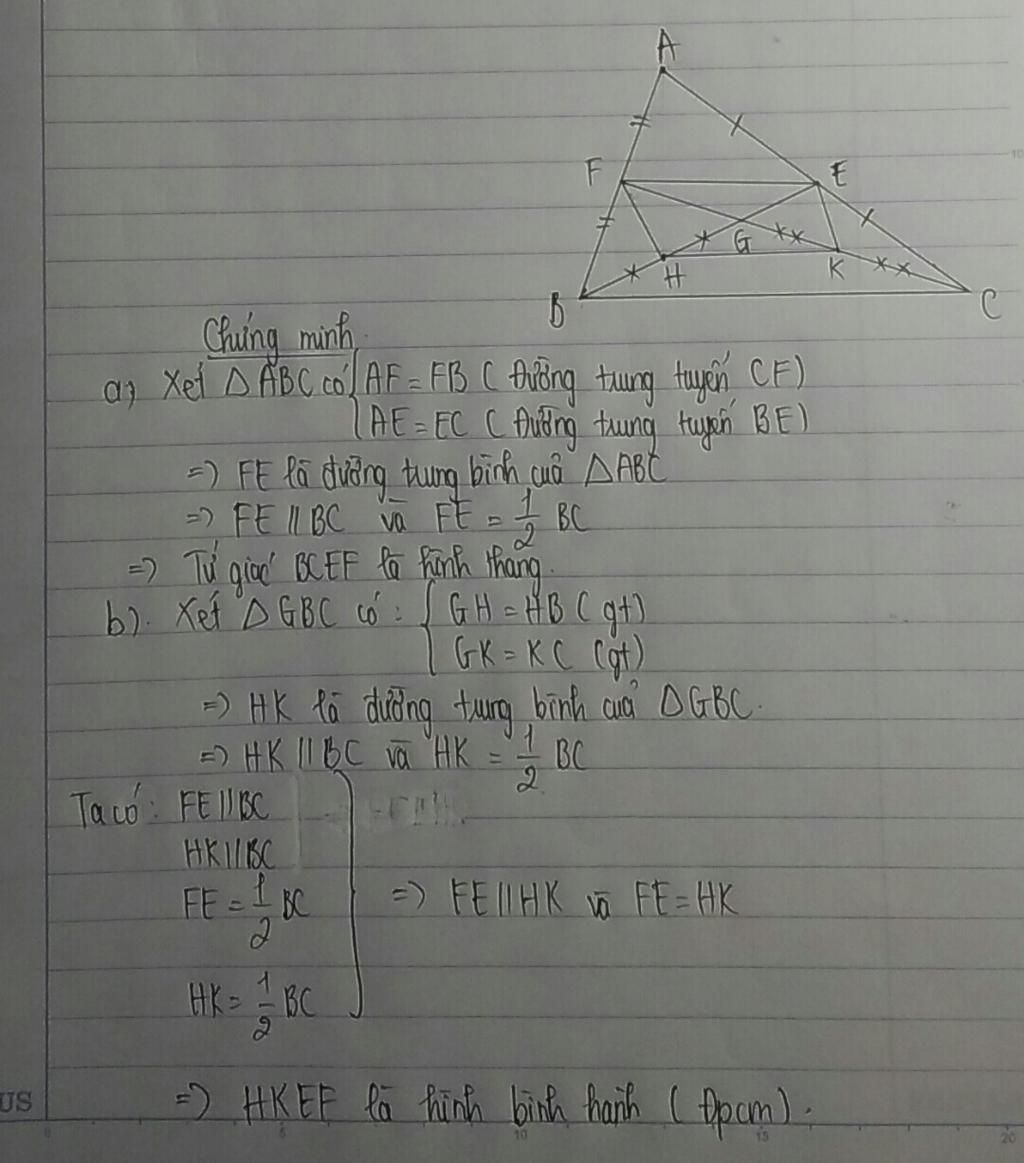 A
F
E
G
H
K
B
C
Chứng minh.
a) Xét △ABC có { AF = FB ( Đường trung tuyến CF)
AE = EC ( Đường trung tuyến BE)
=> FE là đường trung bình của △ABC
=> FE // BC và FE = 1/2 BC
=> Tứ giác BCEF là hình thang.
b). Xét △GBC có : { GH = HB ( gt)
GK = KC (gt)
=> HK là đường trung bình của △GBC.
=> HK // BC và HK = 1/2 BC
Ta có : FE // BC
HK // BC
FE = 1/2 BC
=> FE // HK và FE = HK
HK = 1/2 BC
=> HKEF là hình bình hành ( Đpcm ).
US
0 5 10 15 20
10